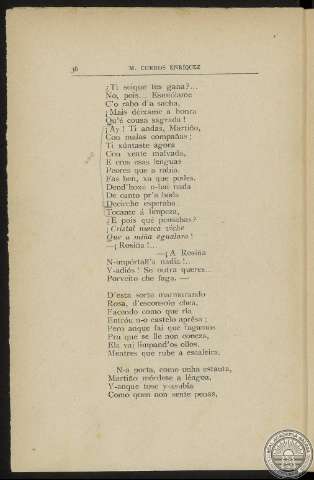 36
M. CURROS ENRÍQUEZ
¿Ti seique tes gana?...
No, pois... Esmóleme
C'o rabo d'a sacha,
¡Mais déixame a honra
Qu'é cousa sagrada!
¡Ay! Ti andas, Martiño,
Con malas compañas;
Ti xúntaste agora
Con xente malvada,
E eres esas lenguas
Peores que a rabia.
Fas ben, xa que podes.
Dend'hoxe n-hai nada
De canto pr'a boda
Decirche esperaba.
Tocante á limpeza,
¿E pois qué pensabas?
¡Cristal nunca viche
Que a miña egualara!
—¡Rosiña!...
—¡A Rosiña
N-impórtall'a nadia!...
Y-adiós! Se outra queres...
Porveito che faga.—
D'esta sorte marmurando
Rosa, d'esconsolo chea,
Facendo como que ría
Entróu n-o castelo apresa;
Pero anque fai que fagamos
Pra que se lle non coneza,
Ela vai limpand'os ollos,
Mentres que rube a escaleira.
N-a porta, como unha estauta,
Martiño mórdese a léngoa,
Y-anque tose y-asubía
Como quen non sente penas,